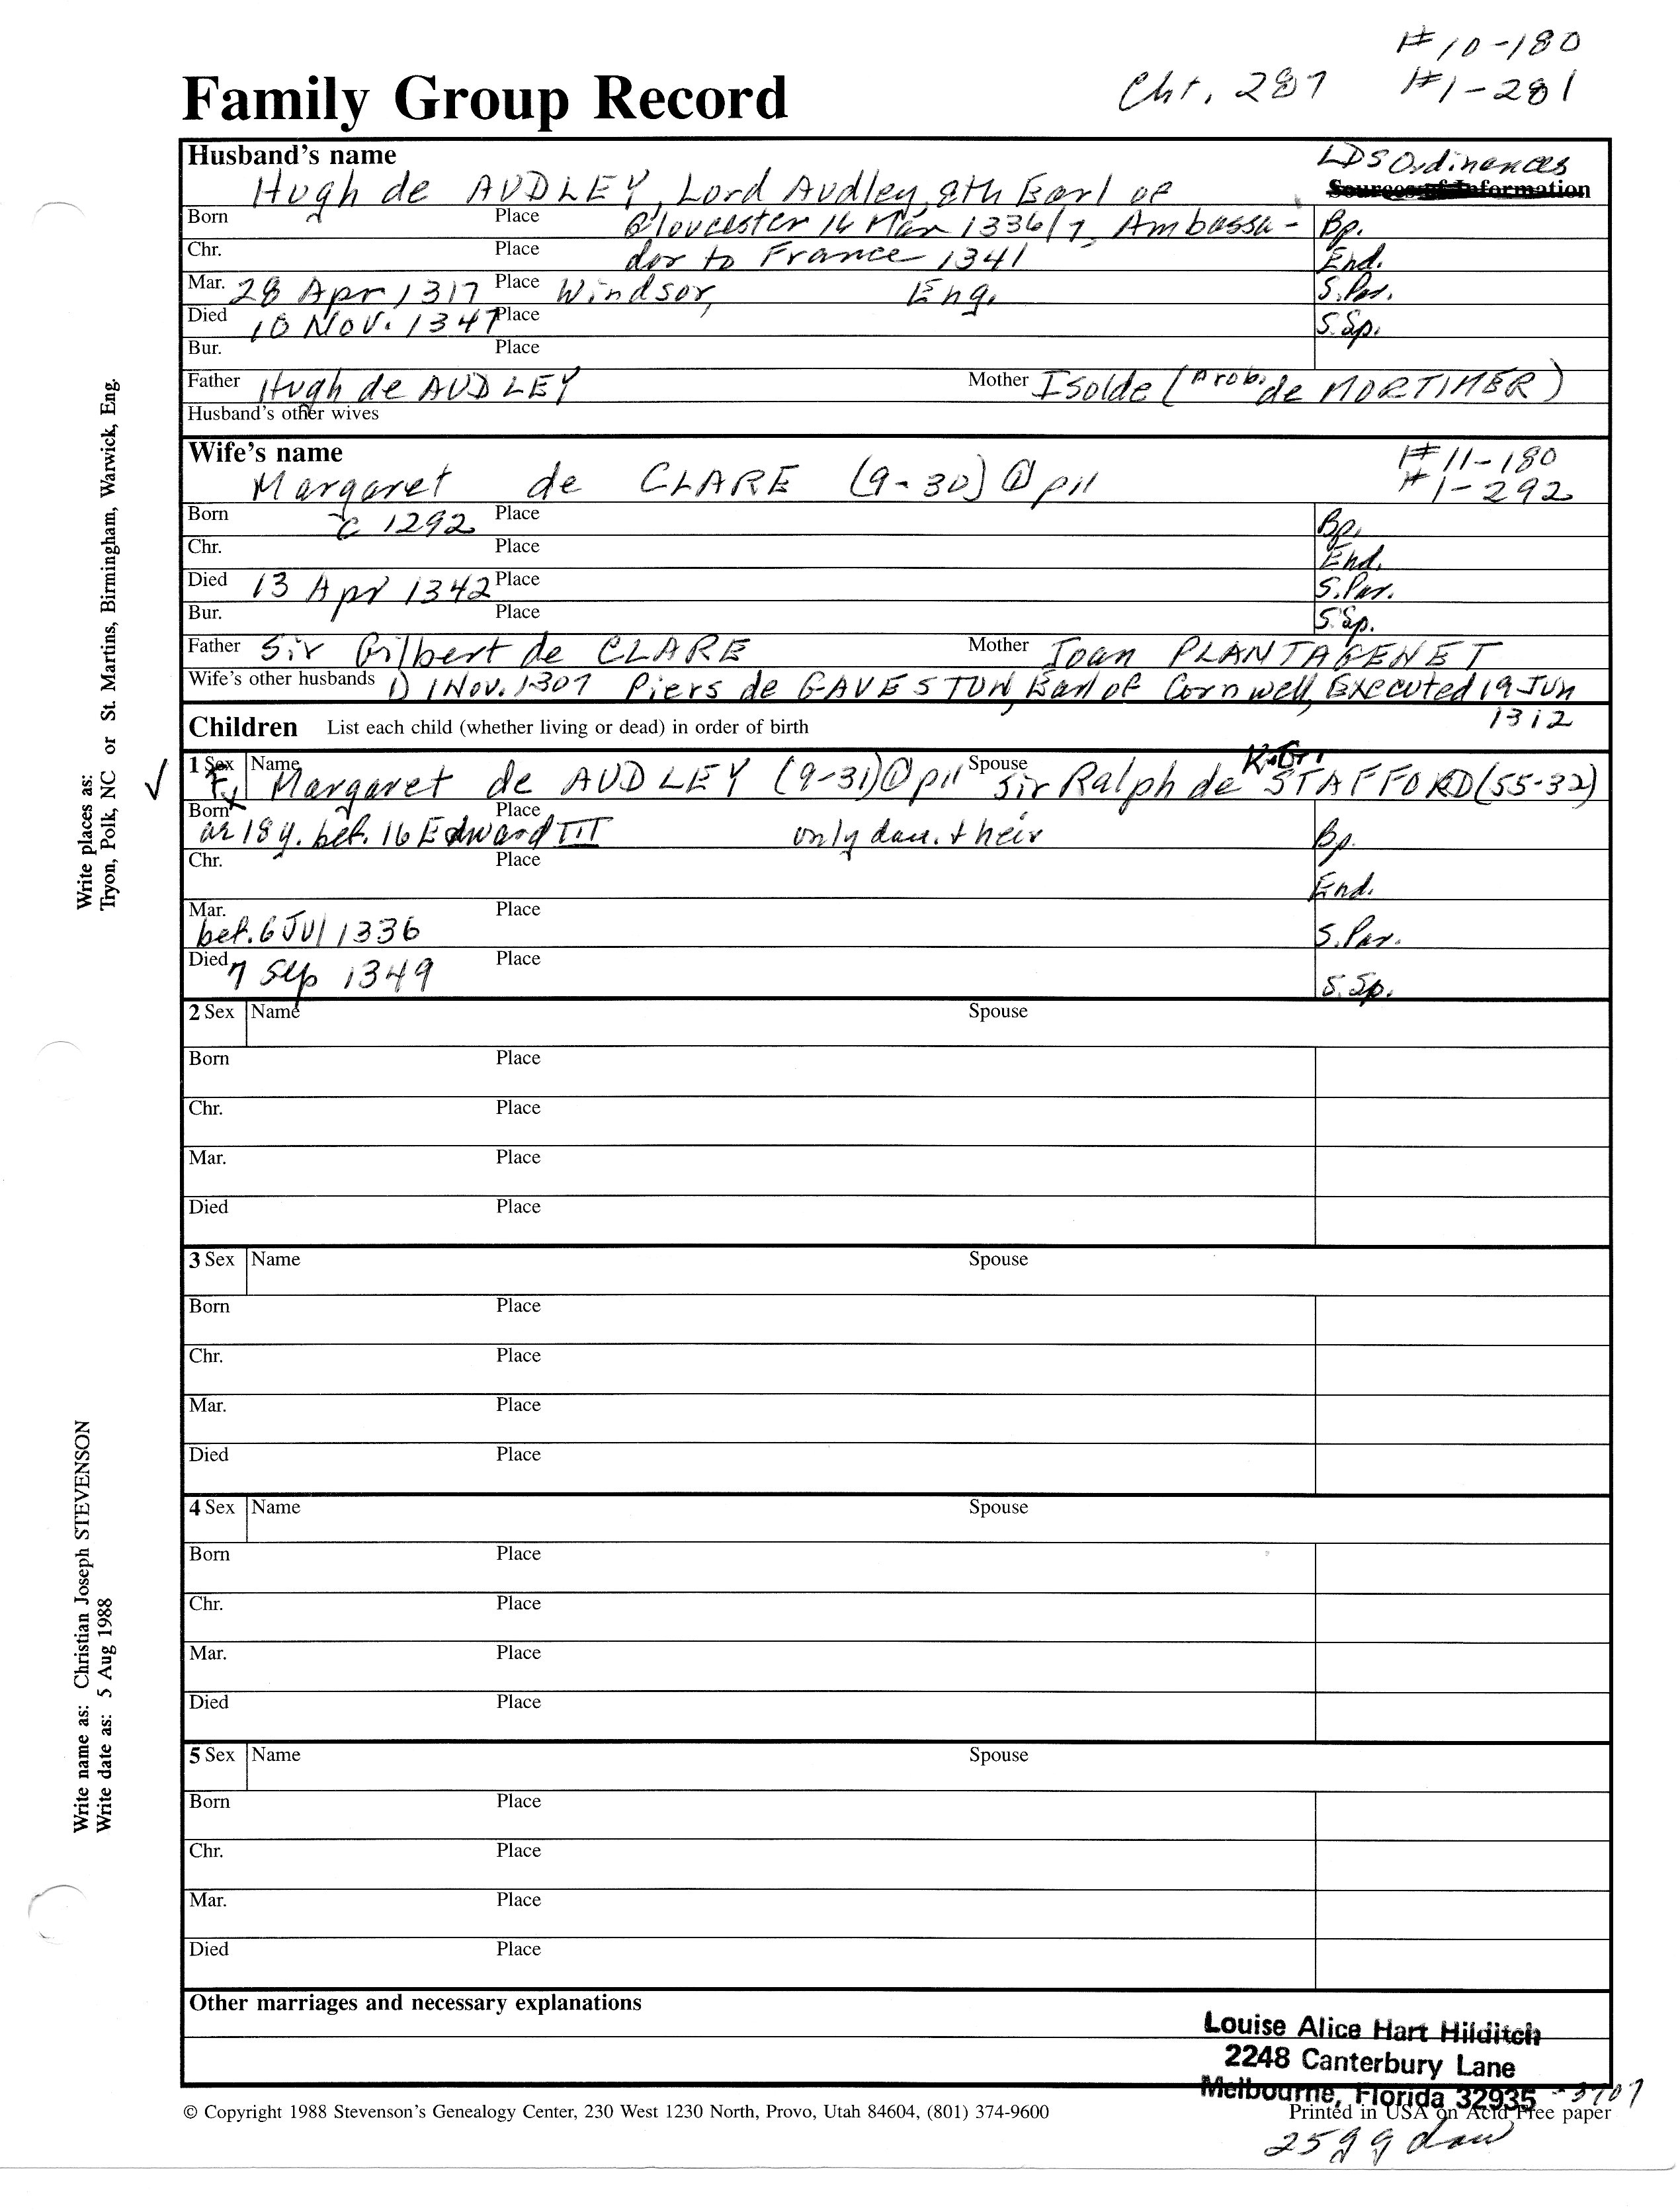 #10-180
Family Group Record Cht. 287 #1-281
Husband's name LDS Ordinances
Hugh de AUDLEY, Lord Audley, 8th Earl of
Born Place Gloucester 16 Mar 1336/7, Ambassa- Bp.
Chr. Place dor to France 1341 End.
Mar. 28 Apr 1317 Place Windsor, Eng. S.Par.
Died 10 NOV. 1347 Place S.Sp.
Bur. Place
Father Hugh de AUDLEY Mother Isolde (Prob. de MORTIMER)
Husband's other wives
Wife's name #11-180
Margaret de CLARE (9-30) @ pil #1-292
Born C 1292 Place Bp.
Chr. Place End.
Died 13 Apr 1342 Place S.Par.
Bur. Place S.Sp.
Father Sir Gilbert de CLARE Mother Joan PLANTAGENET
Wife's other husbands 1) 1 Nov. 1307 Piers de GAVESTON, Earl of Cornwell, Executed 19 Jun
1312
Children List each child (whether living or dead) in order of birth
1 Sex F Name Margaret de AUDLEY (9-31) @ pil Spouse Sir Ralph de STAFFORD (55-32)
Born ae 18 y. bef. 16 Edward III Place only dau. & heir Bp.
Chr. Place End.
Mar. bef. 6 Jul 1336 Place S.Par.
Died 7 Sep 1349 Place S.Sp.
2 Sex Name Spouse
Born Place
Chr. Place
Mar. Place
Died Place
3 Sex Name Spouse
Born Place
Chr. Place
Mar. Place
Died Place
4 Sex Name Spouse
Born Place
Chr. Place
Mar. Place
Died Place
5 Sex Name Spouse
Born Place
Chr. Place
Mar. Place
Died Place
Other marriages and necessary explanations
Louise Alice Hart Hilditch
2248 Canterbury Lane
Melbourne, Florida 32935 -5707
© Copyright 1988 Stevenson's Genealogy Center, 230 West 1230 North, Provo, Utah 84604, (801) 374-9600 Printed in USA on Acid Free paper
25 g g dau
Write places as:
Tryon, Polk, NC or St. Martins, Birmingham, Warwick, Eng.
Write name as: Christian Joseph STEVENSON
Write date as: 5 Aug 1988